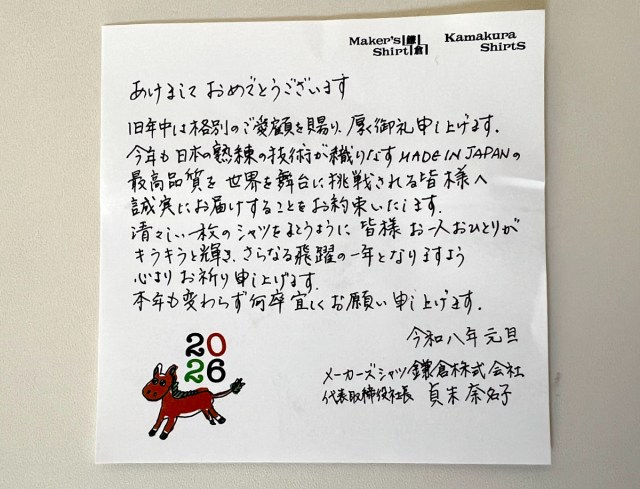 Maker's Shirt 鎌倉
Kamakura Shirts
あけまして おめでとうございます
旧年中は格別のご愛顧を賜り、厚く御礼申し上げます。
今年も日本の熟練の技術が織りなす MADE IN JAPANの
最高品質を 世界を舞台に挑戦される皆様へ
誠実にお届けすることをお約束いたします。
清々しい一枚のシャツをまとうように 皆様 お一人おひとりが
キラキラと輝き、さらなる飛躍の一年となりますよう
心よりお祈り申し上げます。
本年も変わらず何卒宜しくお願い申し上げます。
令和八年元旦
メーカーズシャツ鎌倉株式会社
代表取締役社長 貞末 奈名子
20
26